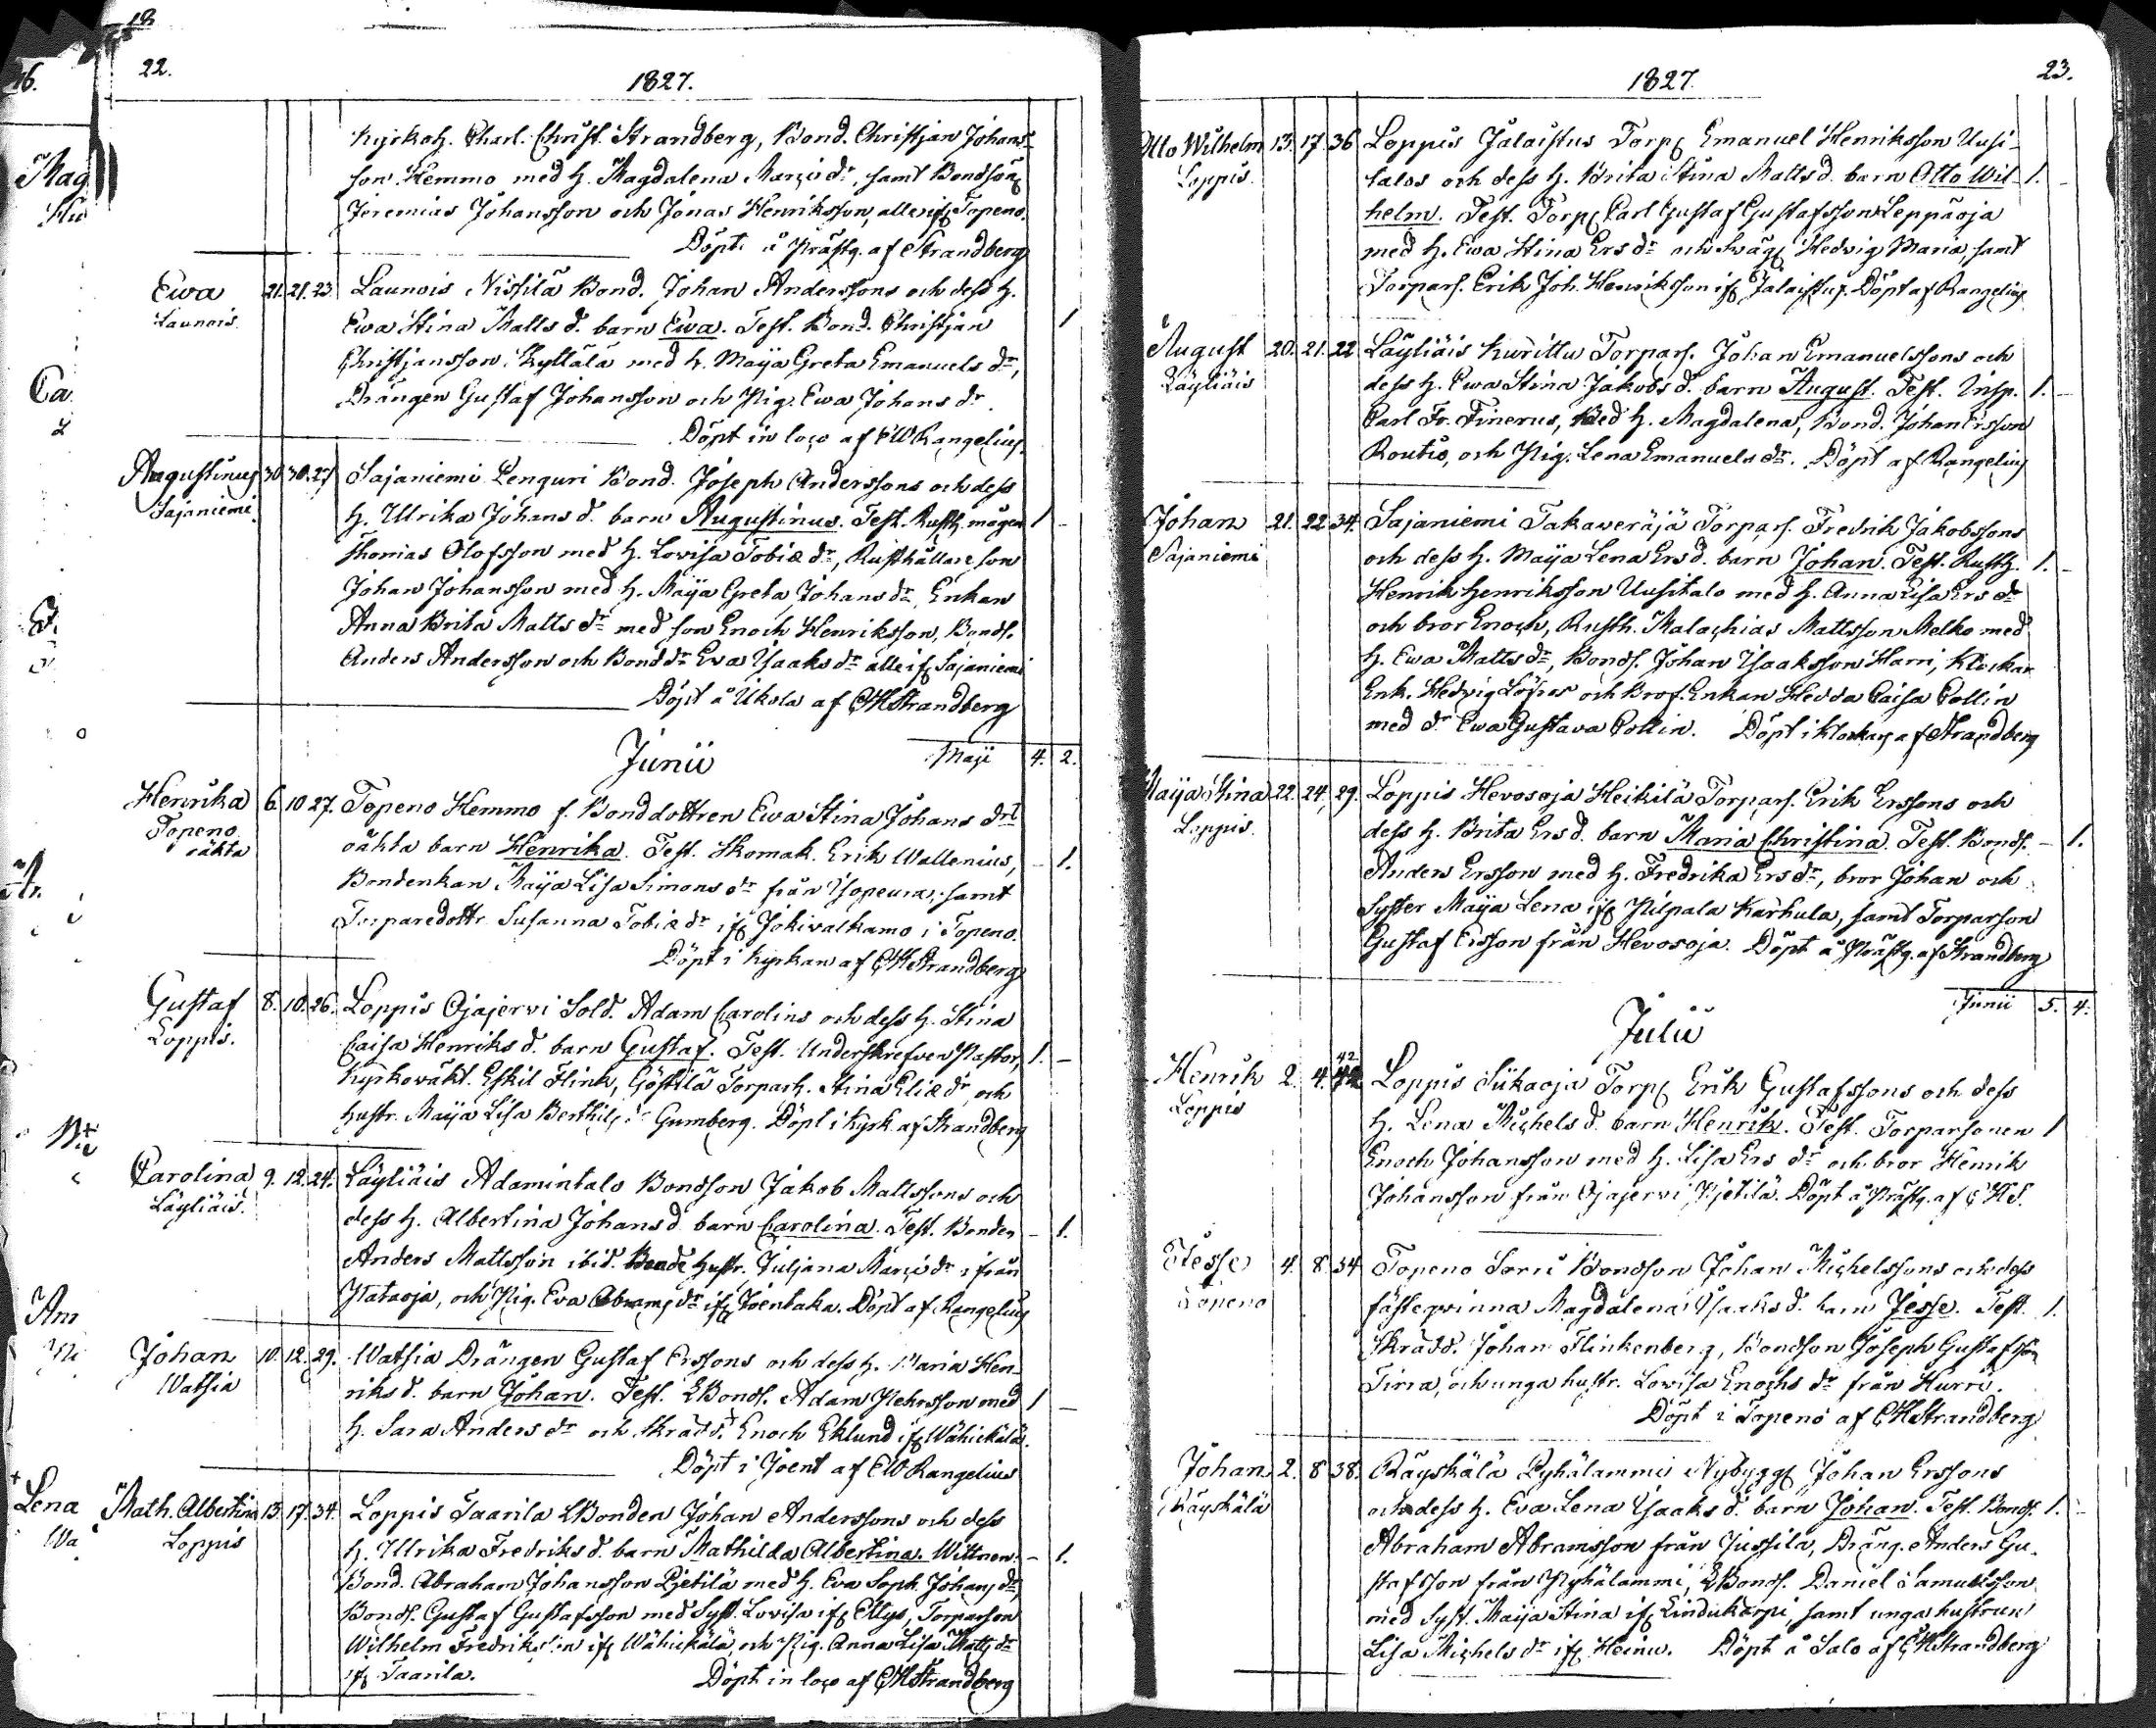 22.
1827.
Kyrkoh. Charl. Christ. Strandberg, Bond. Christjan Johans-
son Hemmo med h. Magdalena Marci dr, samt Bondsön
Jeremias Johansson och Jonas Henriksson, alle if Topeno.
Döpt å Prästg. af Strandberg
Ewa 21. 21. 23. Launois Nissilä Bond. Johan Anderssons och dess h.
Launois. Ewa Stina Matts d. barn Ewa. Test. Bond. Christjan 1
Christjansson Kyttälä med h. Maija Greta Emanuels dr,
Drängen Gustaf Johansson och Pig. Ewa Johans dr.
Döpt in loco af EW Rangelius.
Augustinus 30 30. 27 Sajaniemi Penguri Bond. Joseph Anderssons och dess
Sajaniemi. h. Ulrika Johans d. barn Augustinus. Test. Rusth. mågen 1 -
Thomas Olofsson med h. Lovisa Tobiæ dr, Rusthållare son
Johan Johansson med h. Maija Greta Johans dr, Enkan
Anna Brita Matts dr med son Enoch Henriksson, Bonds.
Anders Andersson och Bond dr Eva Isaaks dr alle if Sajaniemi
Döpt å Uksla af CHStrandberg
Junii Maji 4. 2.
Henrika 6 10 27. Topeno Hemmo f. Bonddottren Ewa Stina Johans drs
Topeno oäkta barn Henrika. Test. Skomak. Erik Wallenius, - 1.
oäkta Bondenkan Maija Lisa Simons dr från Isopeura, samt
Torparedottr Susanna Tobiæ dr if Jokivalkamo i Topeno.
Döpt i Kyrkan af CHStrandberg
Gustaf 8. 10. 26. Loppis Ojajerwi Sold. Adam Carolins och dess h. Stina
Loppis. Caisa Henriks d. barn Gustaf. Test. Underskrefven Pastor, 1. -
Kyrkoväkt. Eskil Flink, Göstilä Torparh. Stina Eliæ dr och
hustr. Maija Lisa Berthils dr Gumberg. Döpt i Kyrk. af Strandberg
Carolina 9. 12. 24. Läyliäis Adamintalo Bondson Jakob Mattssons och
Läyliäis. dess h. Albertina Johans d. barn Carolina. Test. Bonden - 1.
Anders Mattsson ibid. Bonde hustr. Juljana Marci dr ifrån
Pataoja, och Pig. Eva Abrams dr if Joentaka. Döpt af Rangelius
Johan 10. 12. 29. Watsia Drängen Gustaf Erssons och dess h. Maria Hen-
Watsia riks d. barn Johan. Test. LBonds. Adam Pehrsson med 1 -
h. Sara Anders dr och Skrädd. Enoch Eklund if Wähickälä.
Döpt i Joent. af EW Rangelius
Math. Albertina 13. 17. 34. Loppis Saarila LBonden Johan Anderssons och dess
Loppis h. Ulrika Fredriks d. barn Mathilda Albertina. Wittnen. - 1.
Bond. Abraham Johansson Pjetilä med h. Eva Soph. Johans dr,
Bonds. Gustaf Gustafsson med Syst. Lovisa if Ellys, Torparson
Wilhelm Fredriksson if Wähickälä, och Pig. Anna Lisa Matts dr
if Saarila. Döpt in loco af CHStrandberg
23.
1827.
Otto Wilhelm 13. 17. 36 Loppis Jalaistus Torp. Emanuel Henriksson Uusi-
Loppis. talos och dess h. Brita Stina Matts d. barn Otto Wil- 1. -
helm. Test. Torp. Carl Gustaf Gustafsson Leppäoja
med h. Ewa Stina Ers dr och Swäg. Hedvig Maria, samt
Torpars. Erik Joh. Henriksson if Jalaistus. Döpt af Rangelius
August 20. 21. 22 Läyliäis Kurittu Torpars. Johan Emanuelssons och
Läyliäis dess h. Ewa Stina Jakobs d. barn August. Test. Insp. 1. -
Carl Fr. Finerus, Med h. Magdalena, Bond. Johan Ersson
Routio, och Pig. Lena Emanuels dr. Döpt af Rangelius
Johan 21. 22 34. Sajaniemi Takaweräjä Torpars. Fredrik Jakobssons
Sajaniemi och dess h. Maija Lena Ers d. barn Johan. Test. Rusth. 1. -
Henrik Henriksson Uusitalo med h. Anna Lisa Ers dr
och bror Enoch, Rusth. Malachias Mattsson Melko med
h. Ewa Matts dr, Bonds. Johan Isaaksson Harri, Klockar
Enk. Hedvig Löfros och Prof. Enkan Hedda Caisa Collin
med dr Ewa Gustava Collin. Döpt i Klockarg. af Strandberg
Maija Stina 22. 24. 29. Loppis Hevosoja Heikilä Torpars. Erik Erssons och
Loppis. dess h. Brita Ers d. barn Maria Christina. Test. Bonds. - 1.
Anders Ersson med h. Fredrika Ers dr, bror Johan och
Syster Maija Lena if Pilpala Karhula, samt Torparson
Gustaf Ersson från Hevosoja. Döpt å Prästg. af Strandberg
Junii 5. 4.
Julii
Henrik 2. 4. 42 Loppis Siikaoja Torp. Erik Gustafssons och dess
Loppis h. Lena Michels d. barn Henrik. Test. Torparsonen 1
Enoch Johansson med h. Lisa Ers dr och bror Henrik
Johansson från Ojajerwi Pjetilä. Döpt å Prästg. af CHS.
Jesse 4. 8. 34 Topeno Sorri Bondson Johan Michelssons och dess
Topeno fästeqwinna Magdalena Isaaks d. barn Jesse. Test. 1.
Skrädd. Johan Flinkenberg, Bondson Joseph Gustafsson
Tirra, och unga hustr. Lovisa Enochs dr från Hurri.
Döpt i Topeno af CHStrandberg
Johan 2. 8 38. Räyskälä Pyhälammi Nybygg. Johan Erssons
Räyskälä och dess h. Eva Lena Isaaks d. barn Johan. Test. Bonds. 1. -
Abraham Abramsson från Jussila, Dräng. Anders Gu-
stafsson från Pyhälammi, LBonds. Daniel Samuelsson
med Syst. Maija Stina if Lindukarpi, samt unga hustrun
Lisa Michels dr if Heinu. Döpt å Salo af CHStrandberg